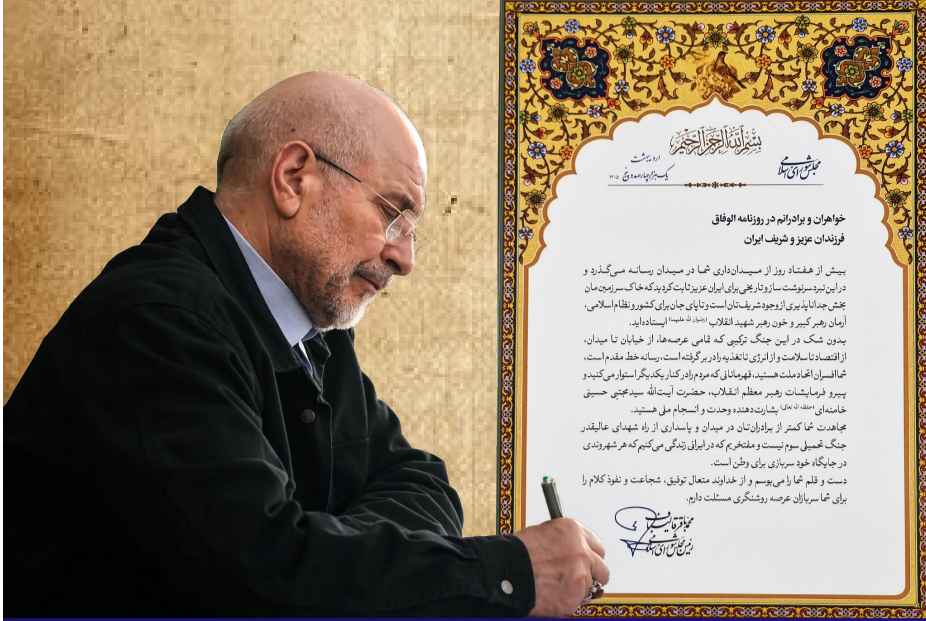 بسم الله الرحمن الرحیم
مجلس شورای اسلامی
اردیبهشت
یک‌هزار و چهارصد و پنج
۱۴۰۵
خواهران و برادرانم در روزنامه الوفاق
فرزندان عزیز و شریف ایران
بیش از هفتاد روز از میدان‌داری شما در میدان رسانه می‌گذرد و
در این نبرد سرنوشت ساز و تاریخی برای ایران عزیز ثابت کردید که خاک سرزمین مان
بخش جدا ناپذیری از وجود شریف‌تان است و تا پای جان برای کشور و نظام اسلامی،
آرمان رهبر کبیر و خون رهبر شهید انقلاب (رضوان الله علیهما) ایستاده‌اید.
بدون شک در این جنگ ترکیبی که تمامی عرصه‌ها، از خیابان تا میدان،
از اقتصاد تا سلامت و از انرژی تا تغذیه را در بر گرفته است، رسانه خط مقدم است،
شما افسران اتحاد ملت هستید، قهرمانانی که مردم را در کنار یکدیگر استوار می‌کنید و
پیرو فرمایشات رهبر معظم انقلاب، حضرت آیت‌الله سید مجتبی حسینی
خامنه‌ای (حفظه الله تعالی) بشارت‌دهنده وحدت و انسجام ملی هستید.
مجاهدت شما کمتر از برادران‌تان در میدان و پاسداری از راه شهدای عالیقدر
جنگ تحمیلی سوم نیست و مفتخریم که در ایرانی زندگی می‌کنیم که هر شهروندی
در جایگاه خود سربازی برای وطن است.
دست و قلم شما را می‌بوسم و از خداوند متعال توفیق، شجاعت و نفوذ کلام را
برای شما سربازان عرصه روشنگری مسئلت دارم.
محمدباقر قالیباف
رئیس مجلس شورای اسلامی